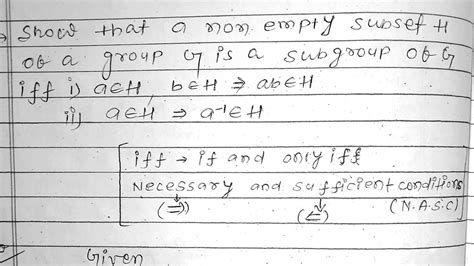 → Show that a non empty subset H
of a group G is a subgroup of G
iff i) a∈H, b∈H ⇒ ab∈H
ii) a∈H ⇒ a⁻¹∈H
iff → if and only iff
Necessary and sufficient conditions
(⇒) (⇐) (N.A.S.C)
Given